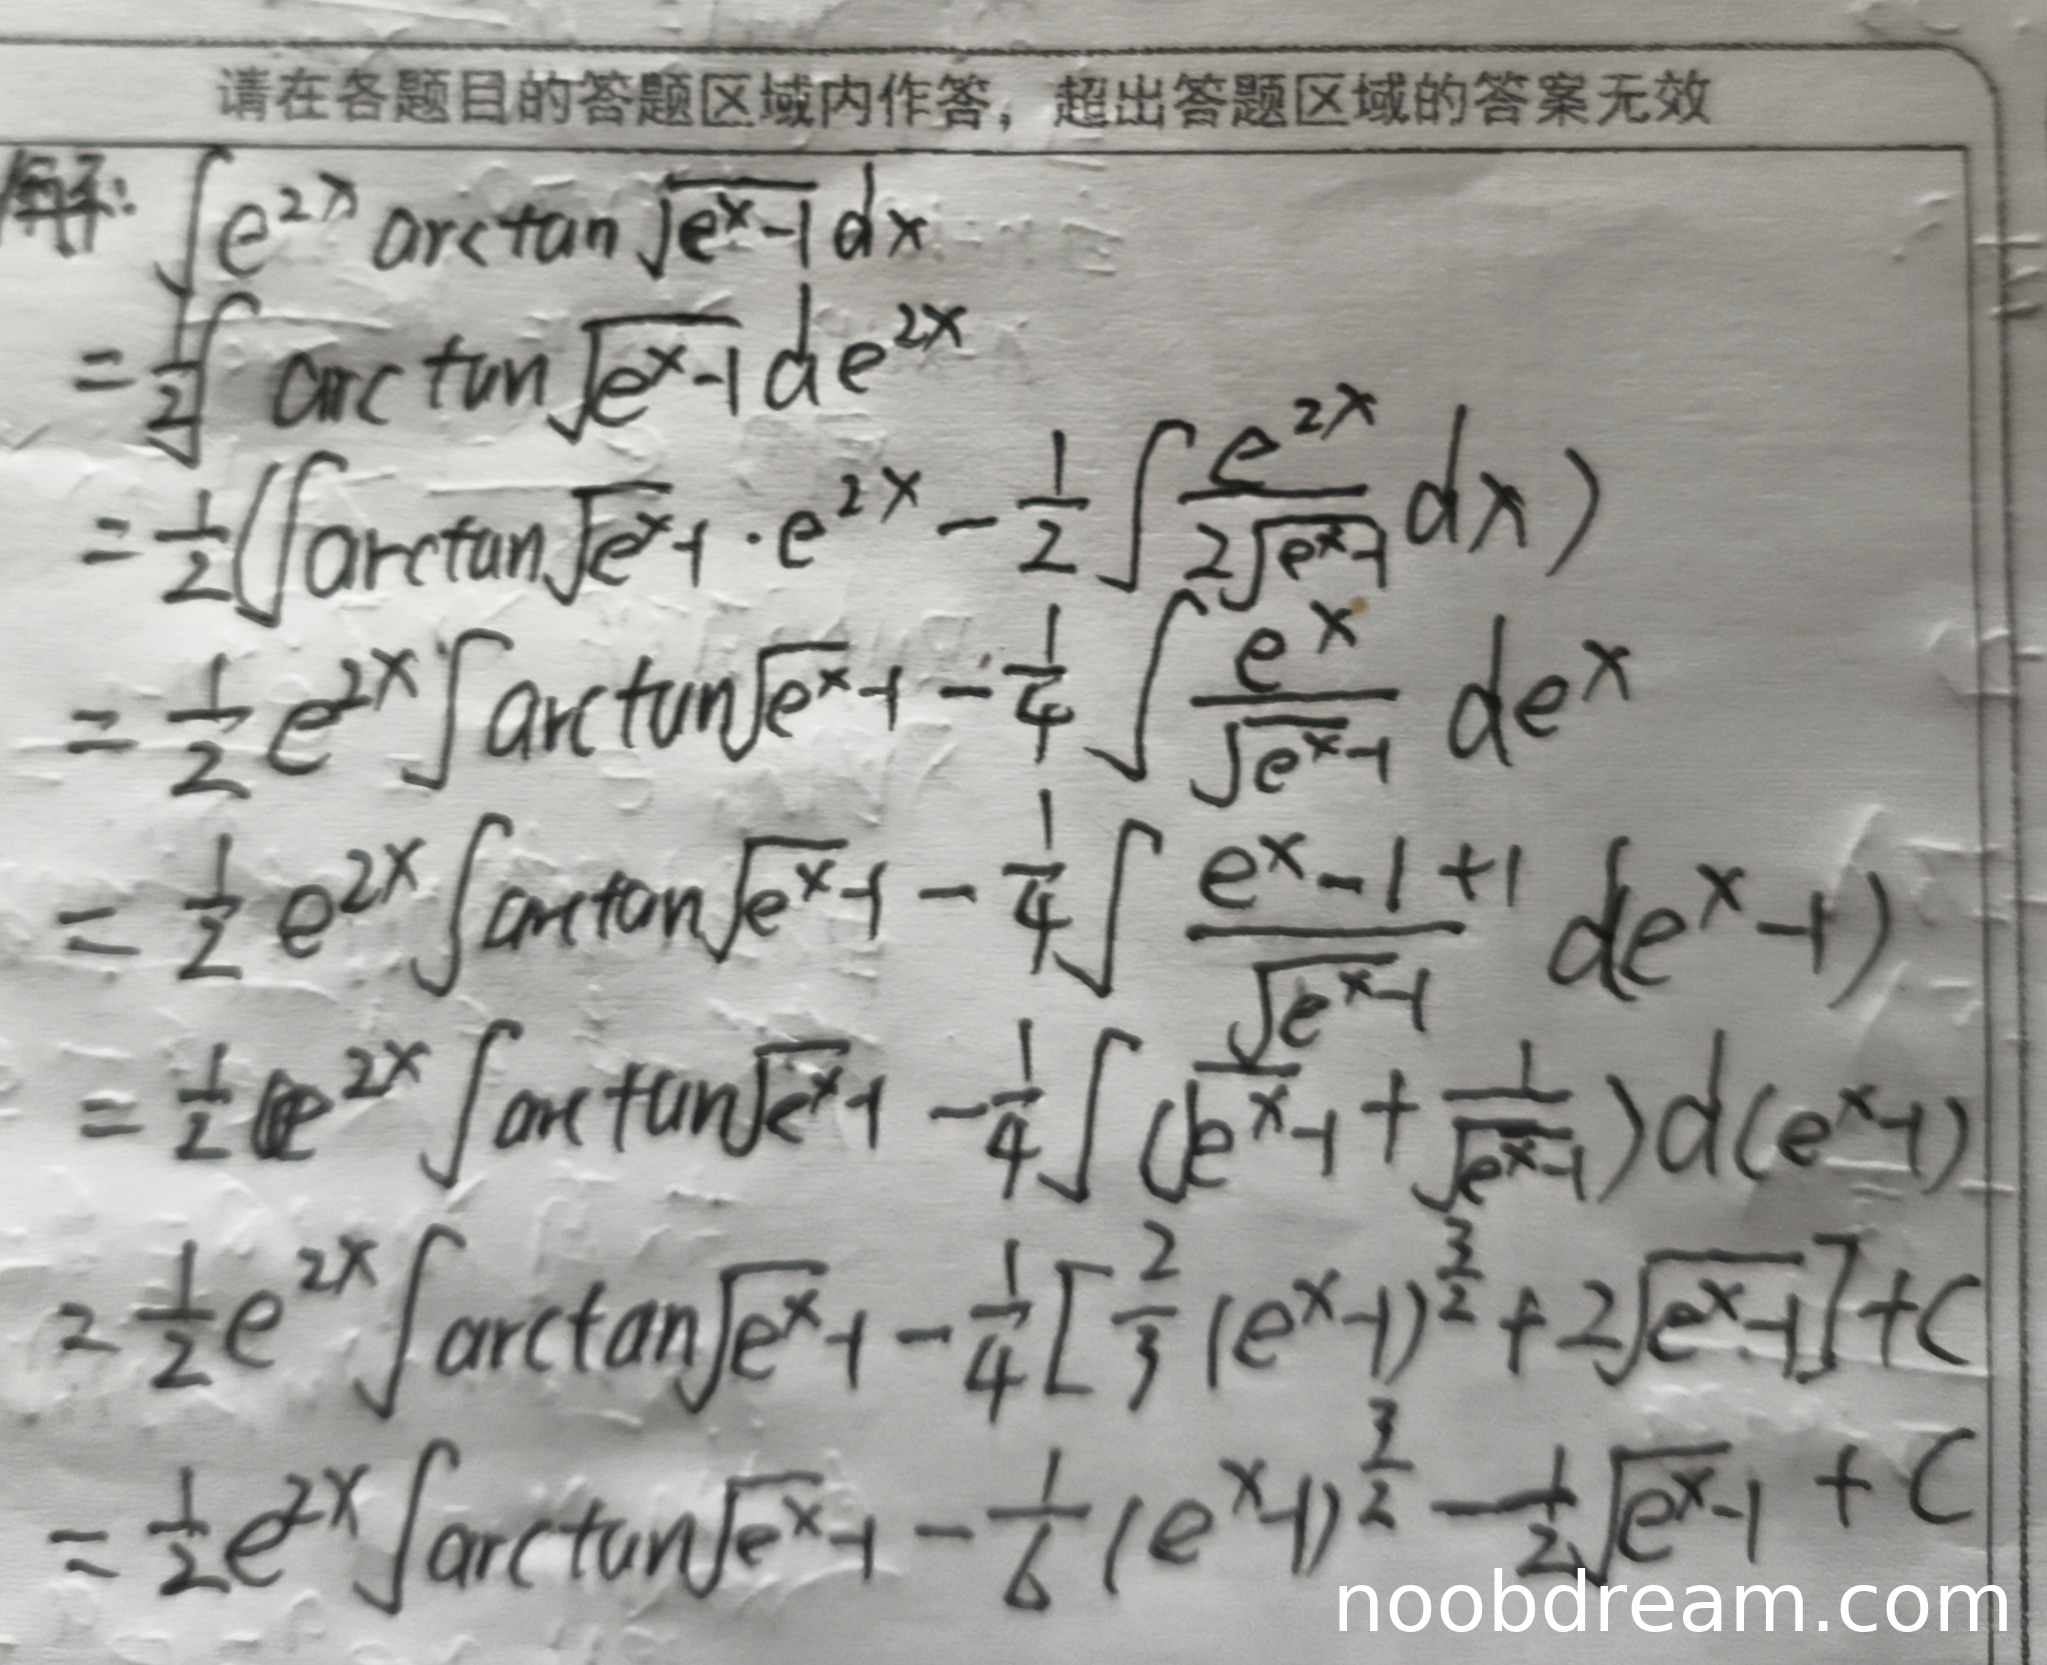 请在各题目的答题区域内作答，超出答题区域的答案无效
解: ∫e^{2x} arctan √(e^x-1) dx
= 1/2 ∫ arctan √(e^x-1) de^{2x}
= 1/2 (∫arctan√(e^x)-1 · e^{2x} - 1/2 ∫ e^{2x}/(2√(e^x-1)) dx)
= 1/2 e^{2x} ∫arctan√(e^x)-1 - 1/4 ∫ e^x/(√(e^x)-1) de^x
= 1/2 e^{2x} ∫arctan√(e^x)-1 - 1/4 ∫ (e^x-1+1)/(√(e^x)-1) d(e^x-1)
= 1/2 e^{2x} ∫arctan√(e^x)-1 - 1/4 ∫ (√(e^x)-1 + 1/√(e^x-1)) d(e^x-1)
= 1/2 e^{2x} ∫arctan√(e^x)-1 - 1/4 [2/3 (e^x-1)^{3/2} + 2√(e^x-1)] + C
= 1/2 e^{2x} ∫arctan√(e^x)-1 - 1/6 (e^x-1)^{3/2} - 1/2 √(e^x)-1 + C
noobdream.com